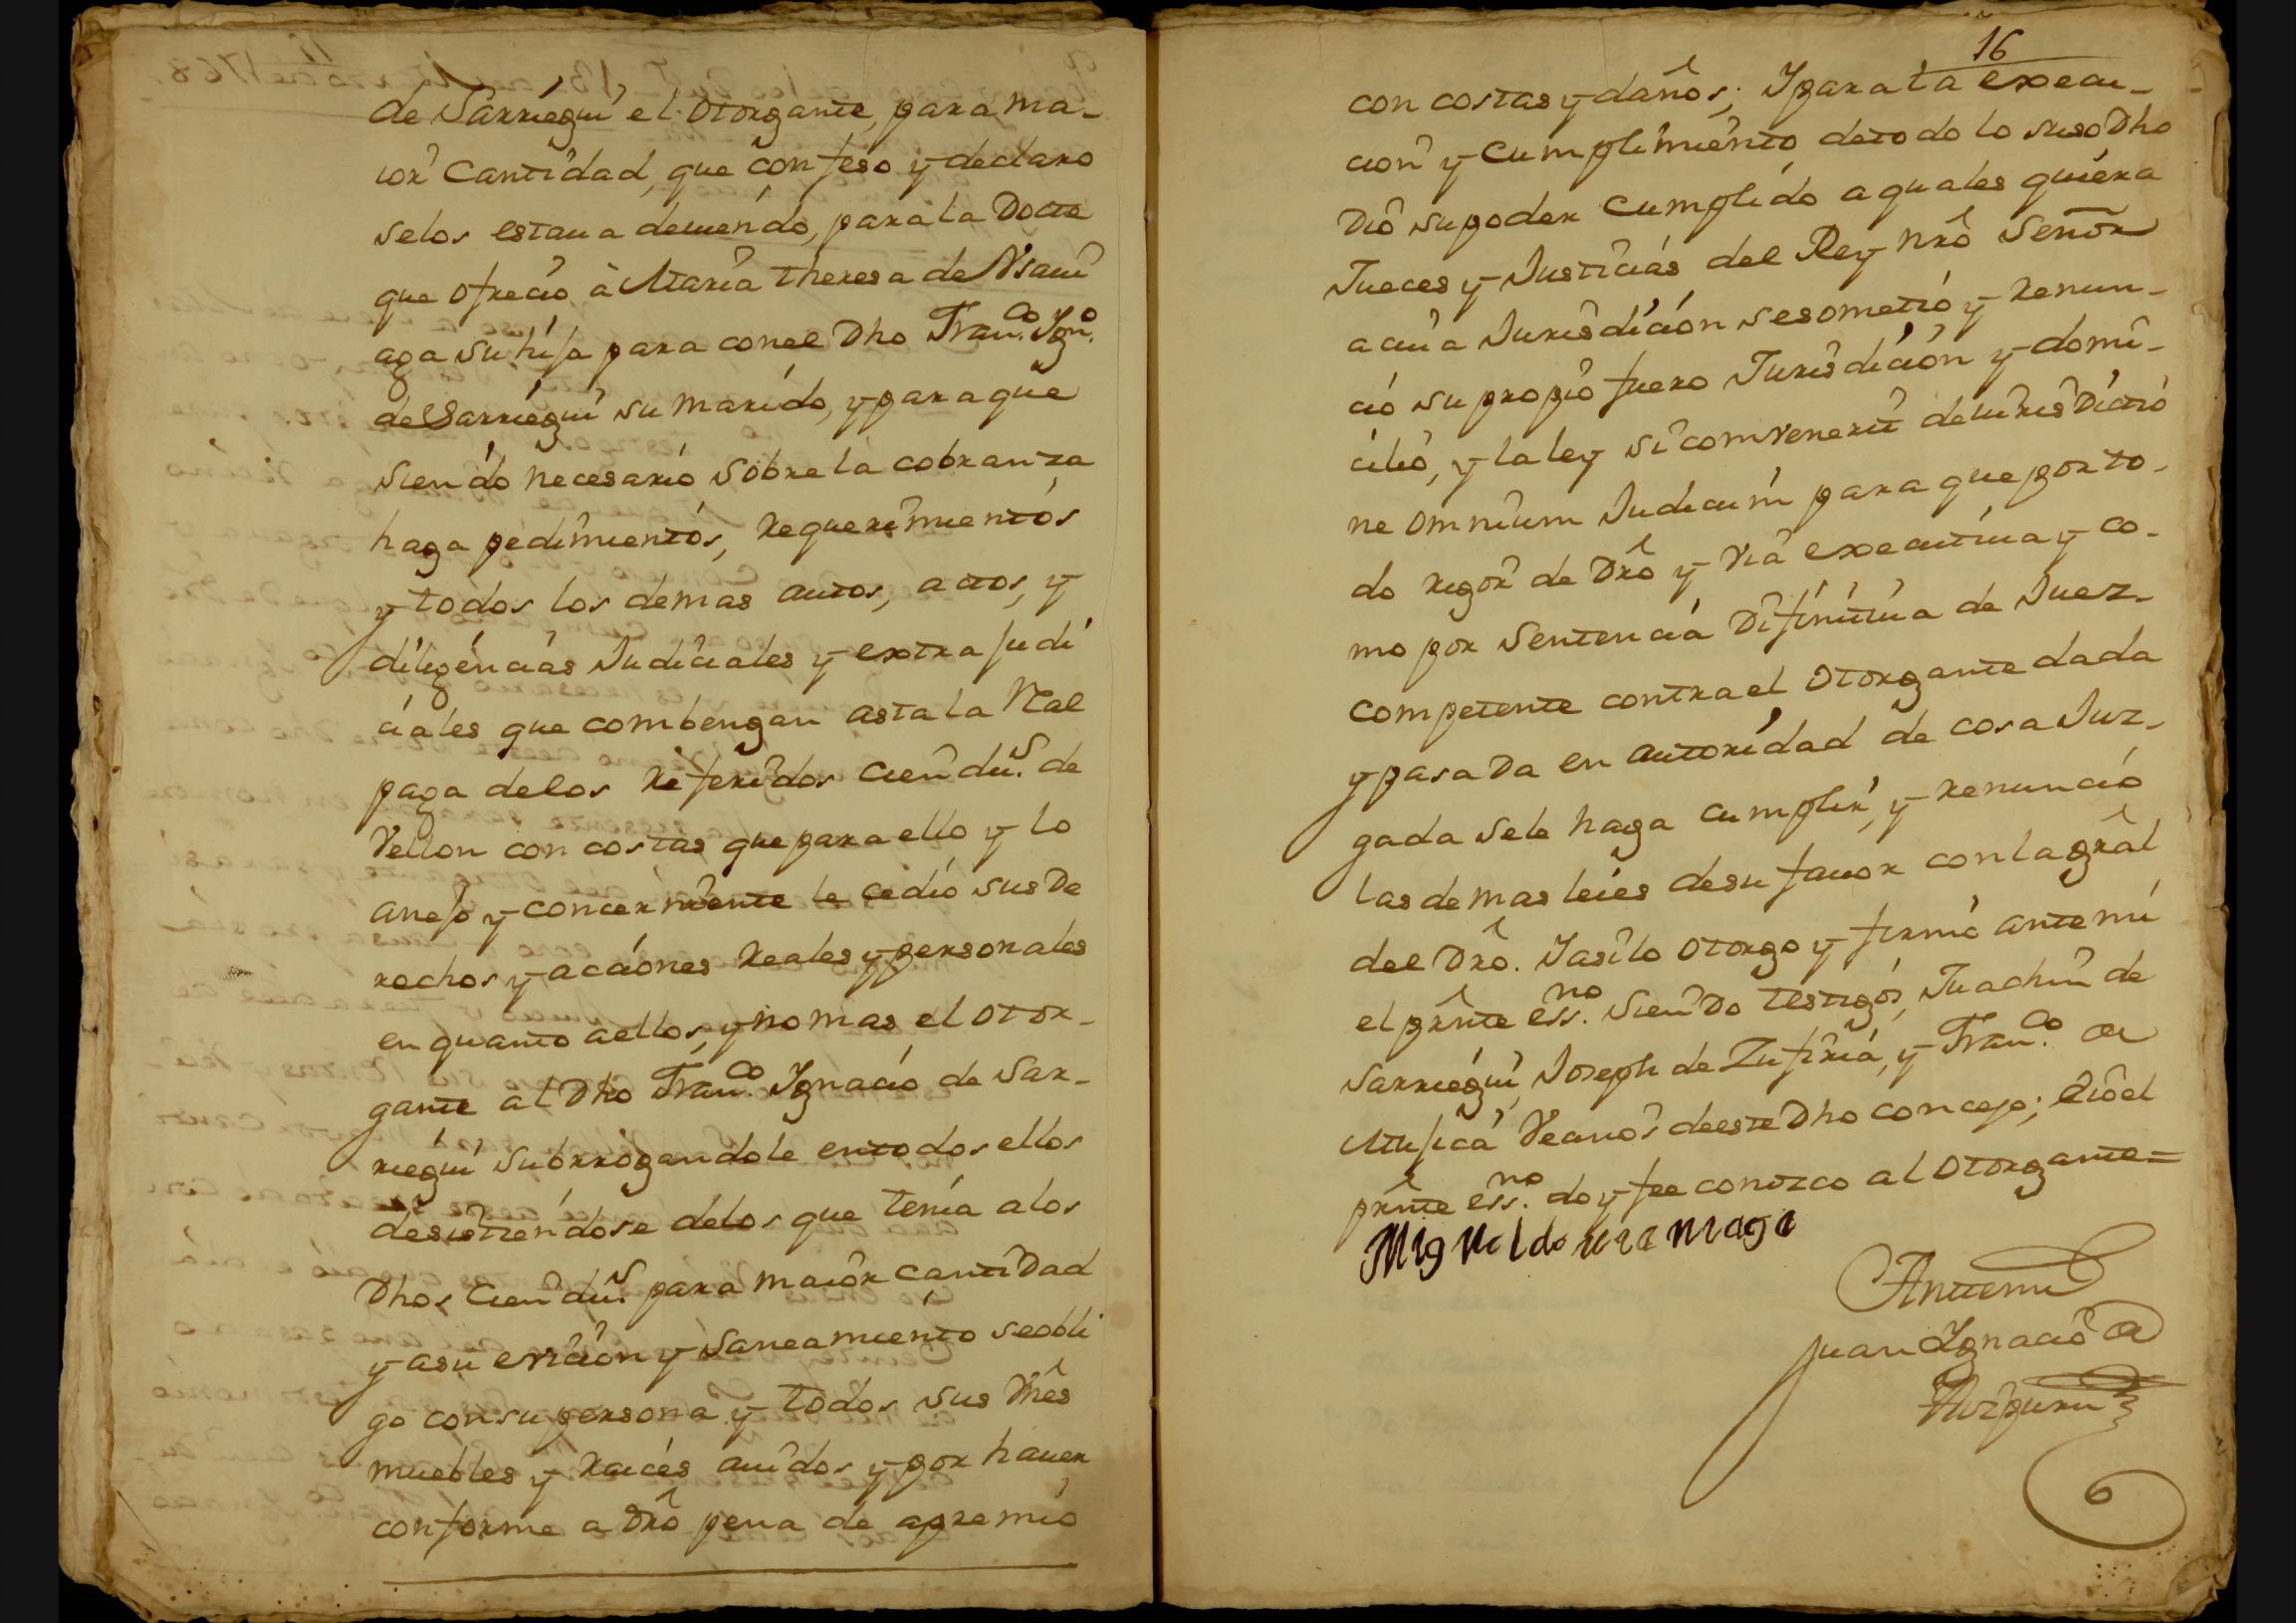 de Sarriegui el otorgante, para ma-
ior Cantidad, que confeso y declaro
selos estaua deuiendo, para la Docte
que ofrecio à Maria theresa de Vsaui
aga su hija para con el Dho Fran.co Ygn.o
de Sarriegui su marido, y para que
siendo necesario sobre la cobranza
haga pedimientos, requerimientos
y todos los demas autos, actos, y
diligencias Judiciales y extra judi
ciales que combengan asta la Real
paga delos referidos cien du.s de
Vellon con costas que para ello y lo
anejo y concerniente le cedio sus De
rechos y acciones reales y personales
en quanto aellos, y no mas, el otor-
gante al Dho Fran.co Ygnacio de Sar-
riegui subrrogandole entodos ellos
desistiendose delos que tenia alos
Dhos Cien du.s para maior cantidad
y asu eviccion y saneamiento seobli
go consupersona y todos sus Vnês
muebles y raices auidos y por hauer
conforme a Drô pena de apremio
16
con costas y daños; Y para la execu-
cion y cumplimiento detodo lo susoDho
Dio supoder cumplido aquales quiera
Jueces y Justicias del Rey Nrô Señor
acuia Jurisdicion sesometio y renun-
cio su propio fuero Jurisdicion y domi-
cilio, y laley si comvenerit de Jurisdictio
ne omnium Judicum para que por to-
do rigor de Drô y via executiua y co-
mo por sentencia Difinitiua de Juez-
competente contra el otorgante dada
y pasada en autoridad de cosa Juz-
gada sele haga cumplir, y renuncio
las demas leies desu fauor con la grâl
del Drô. Yasilo otorgo y firmo ante mi
el prênte ess.no siendo testigos, Juachin de
Sarriegui, Joseph de Zufiria, y Fran.co de
Mujica Vecinos deeste Dho concejo; È Yo el
prênte ess.no doy fee conozco al otorgante=
Migueldo
Antemi
Juan Ygnacio de
Aizpuru